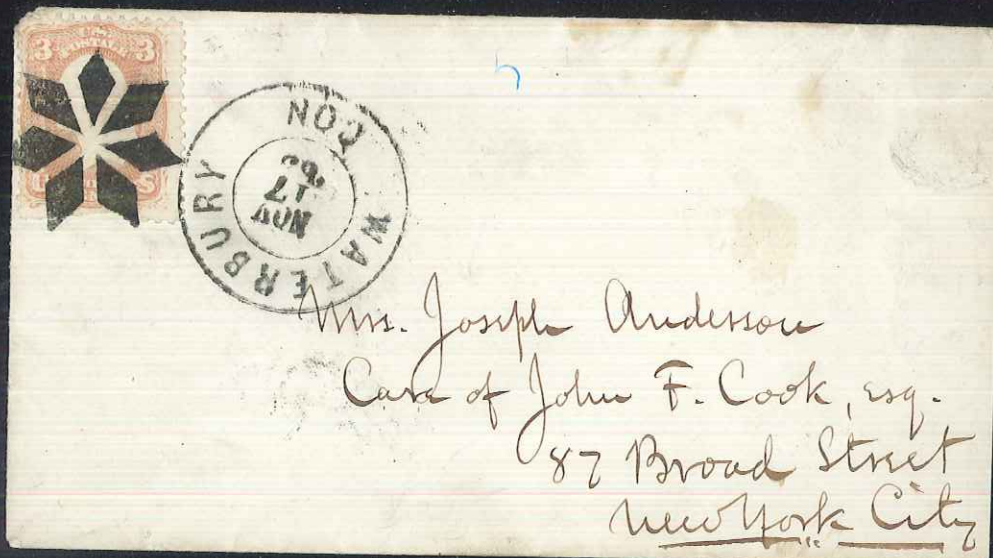 3 3
POSTAGE
WATERBURY CON
NOV
17
Mrs. Joseph Anderson
Care of John F. Cook, esq.
87 Broad Street
New York City